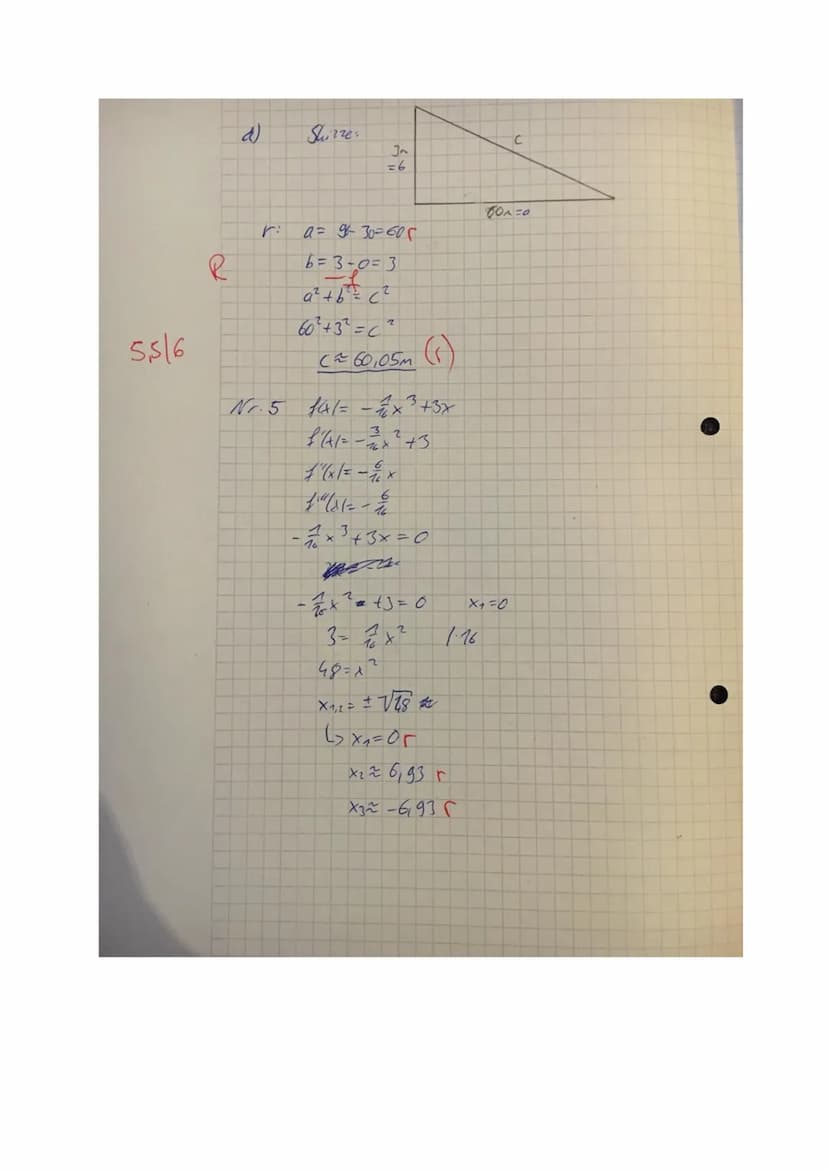 d) Skizze:
c
3m
=b
60m=a
r: a= 90-30=60 r
R b = 3-0=3
f
a²+b²=c²
60²+3²=c²
5,5/6
c≈60,05m (r)
Nr. 5 f(x)= -1/16 x³+3x
f'(x)= -3/16 x²+3
f''(x)= -6/16 x
f'''(x)= -6/16
-1/16 x³+3x=0
-1/16 x² +3=0 x₁=0
3= 1/16 x² /·16
48=x²
x₁,₂= ±√48 ≈
↳ x₁=0 r
x₂≈6,93 r
x₃≈-6,93 r